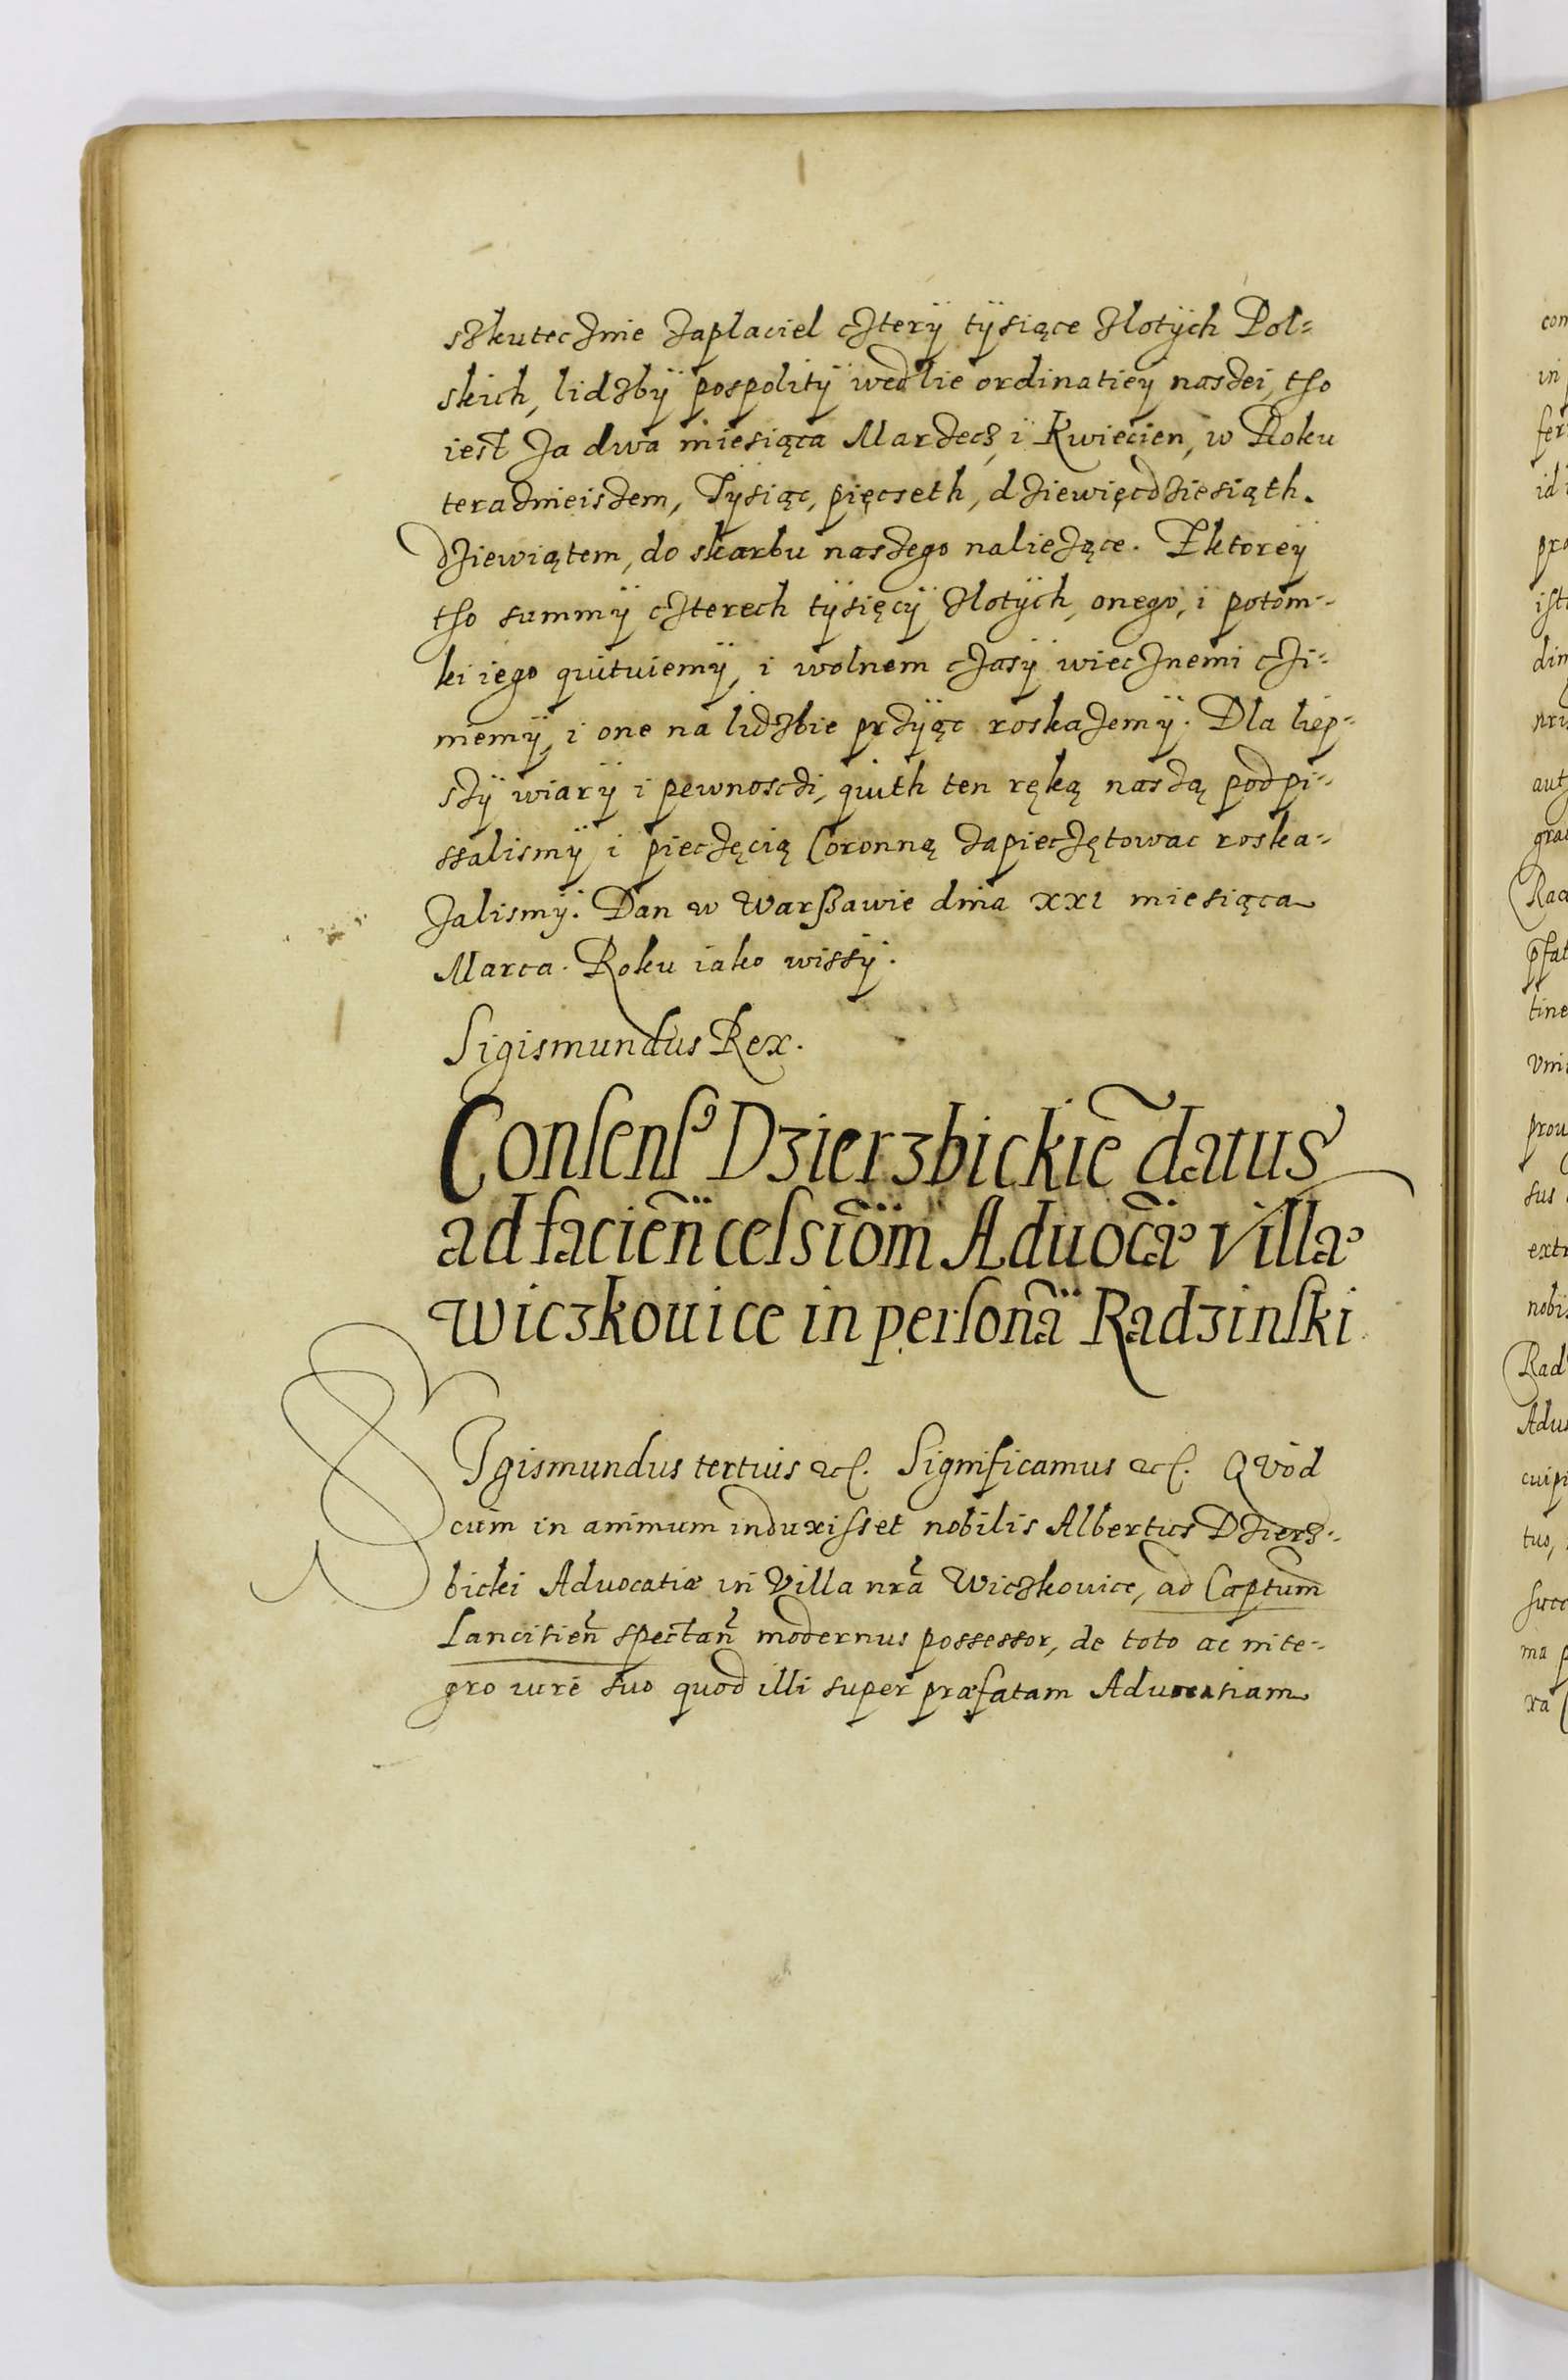 szkutecznie zaplaciel cztery tÿsiące zlotÿch Pol=
skich, lidzbÿ pospolitÿ wedlie ordinatiey naszei, tho
iest za dwa miesiąca Marzecz, i Kwiecien, w Roku
teraznieiszem, Tÿsiąc, pięcseth, dziewięcdziesiąth.
dziewiątem, do skarbu naszego nalieżące. Zktorey
tho summÿ czterech tÿsięcÿ zlotÿch, onego, i potom=
ki iego quituiemÿ, i wolnem czasÿ wiecznemi czi=
niemÿ, i one na lidzbie przÿiąc roskazemÿ. Dla liep=
szÿ wiarÿ i pewnosczi, quith ten ręką naszą podpi=
ssalismÿ i pieczęcią Coronną zapieczętowac roska=
zalismÿ. Dan w Warßawie dnia XXI miesiąca
Marca. Roku iako wissÿ.
Sigismundus Rex.
Consens⁹ Dzierzbickie᷈ datus
ad facien̄ cessiōm Aduocāe villae
Wiczkouice in personā Radzinski
SIgismundus tertius etc. Significamus etc. Quòd
cum in animum induxisset nobilis Albertus Dzierz=
bicki Advocatiæ in Villa nrā Wiczkouice, ad Captum
Lancitien̄ spectan̄ modernus possessor, de toto ac inte=
gro iure suo quod illi super præfatam Aduocatiam
con
in
id
pro
dim
aut
gra
tine
vni
prou
sus
extr
nobis
Rad
Adu
tuo,
succ
ma
xa